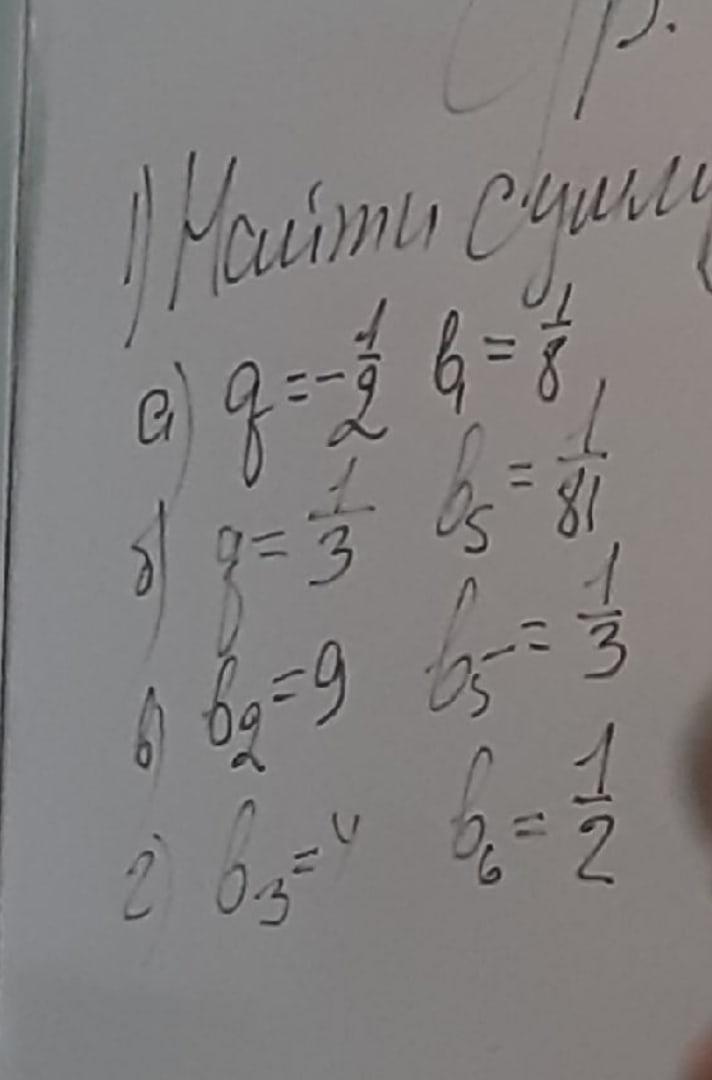 р.
1) Найти сумму
а) q = -1/2 b₁ = 1/8
б) q = 1/3 b₅ = 1/81
в) b₂ = 9 b₅ = 1/3
г) b₃ = 4 b₆ = 1/2